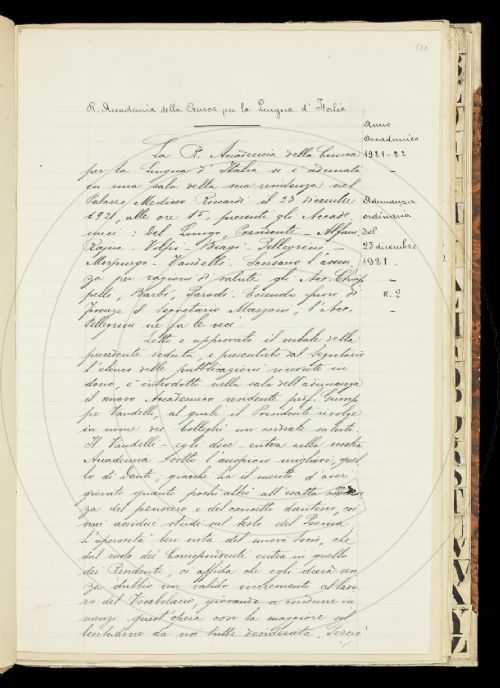 R. Accademia della Crusca per la Lingua d'Italia
Anno
Accademico
1921-22
Adunanza
ordinaria
del
23 dicembre
1921
N. 2
La R. Accademia della Crusca
per la Lingua d'Italia si è adunata
in una sala della sua residenza nel
Palazzo Mediceo Riccardi il 23 dicembre
1921, alle ore 15, presenti gli Accade-
mici: Del Lungo, Presidente - 
Rajna - Volpi - Biagi - Pellegrini -
Morpurgo - Vandelli. Scusano l'assen
za per ragioni di salute gli Acc. Chiap
pelli, Barbi, Parodi. Essendo fuori di
Firenze il Segretario Mazzoni, l'Acc.
Pellegrini ne fa le veci.
Letto e approvato il verbale della
precedente seduta, e presentato dal Segretario
l'elenco delle pubblicazioni ricevute in
dono, è introdotto nella sala dell'adunanza
il nuovo Accademico residente prof. Giusep
pe Vandelli, al quale il Presidente rivolge
in nome dei Colleghi un cordiale saluto.
Il Vandelli - egli dice - entra nella nostra
Accademia sotto l'auspicio migliore, quel
lo di Dante; giacché ha il merito d'aver
giovato quanto pochi altri all'esatta
za del pensiero e del concetto dantesco, coi
suoi assidui studi sul testo del Poema.
L'operosità ben nota del nuovo Socio, che
dal ruolo dei Corrispondenti entra in quello
dei Residenti, ci affida che egli darà sen
za dubbio un valido incremento al lavo
ro del Vocabolario, giovando a condurre in
nanzi quest'opera con la maggiore sol
lecitudine da noi tutti desiderata. Perciò